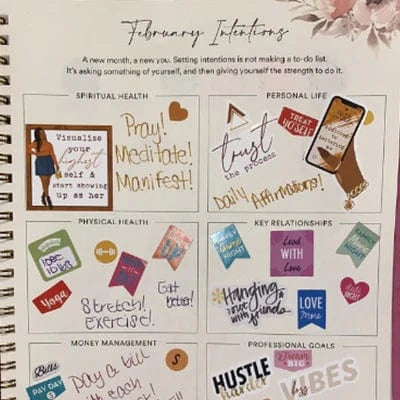 February Intentions
A new month, a new you. Setting intentions is not making a to-do list.
It's asking something of yourself, and then giving yourself the strength to do it.
SPIRITUAL HEALTH
Visualize
your
highest
self &
start showing
up as her
Pray!
Meditate!
Manifest!
PERSONAL LIFE
trust
the process
TREAT
YO'SELF
Addicted
to
Daily Affirmations!
PHYSICAL HEALTH
lose
10lbs
Yoga
Stretch!
exercise!
Eat
better!
KEY RELATIONSHIPS
FAMILY
Game
NIGHT
Lead
WITH
Love
FAMILY
NIGHT
Hanging
out
with friends
LOVE
More
DATE
NIGHT
MONEY MANAGEMENT
Bills
PAY DAY
$
Pay a bill
with each
PROFESSIONAL GOALS
Dream
BIG
HUSTLE
harder
VIBES